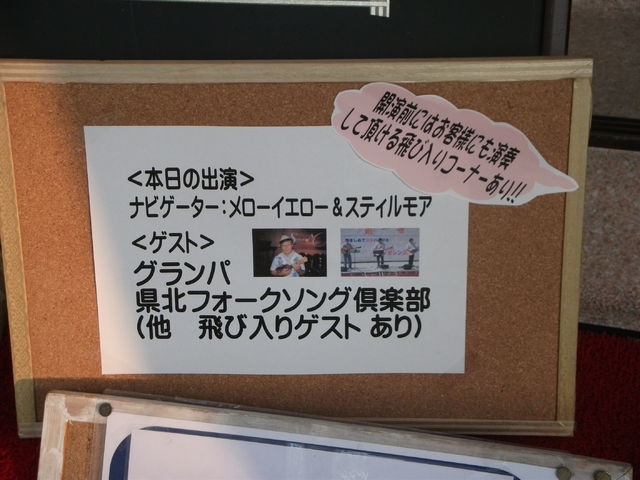 開演前にはお客様にも演奏
して頂ける飛び入りコーナーあり!!
<本日の出演>
ナビゲーター:メローイエロー&スティルモア
<ゲスト>
グランパ
県北フォークソング倶楽部
(他　飛び入りゲスト あり)